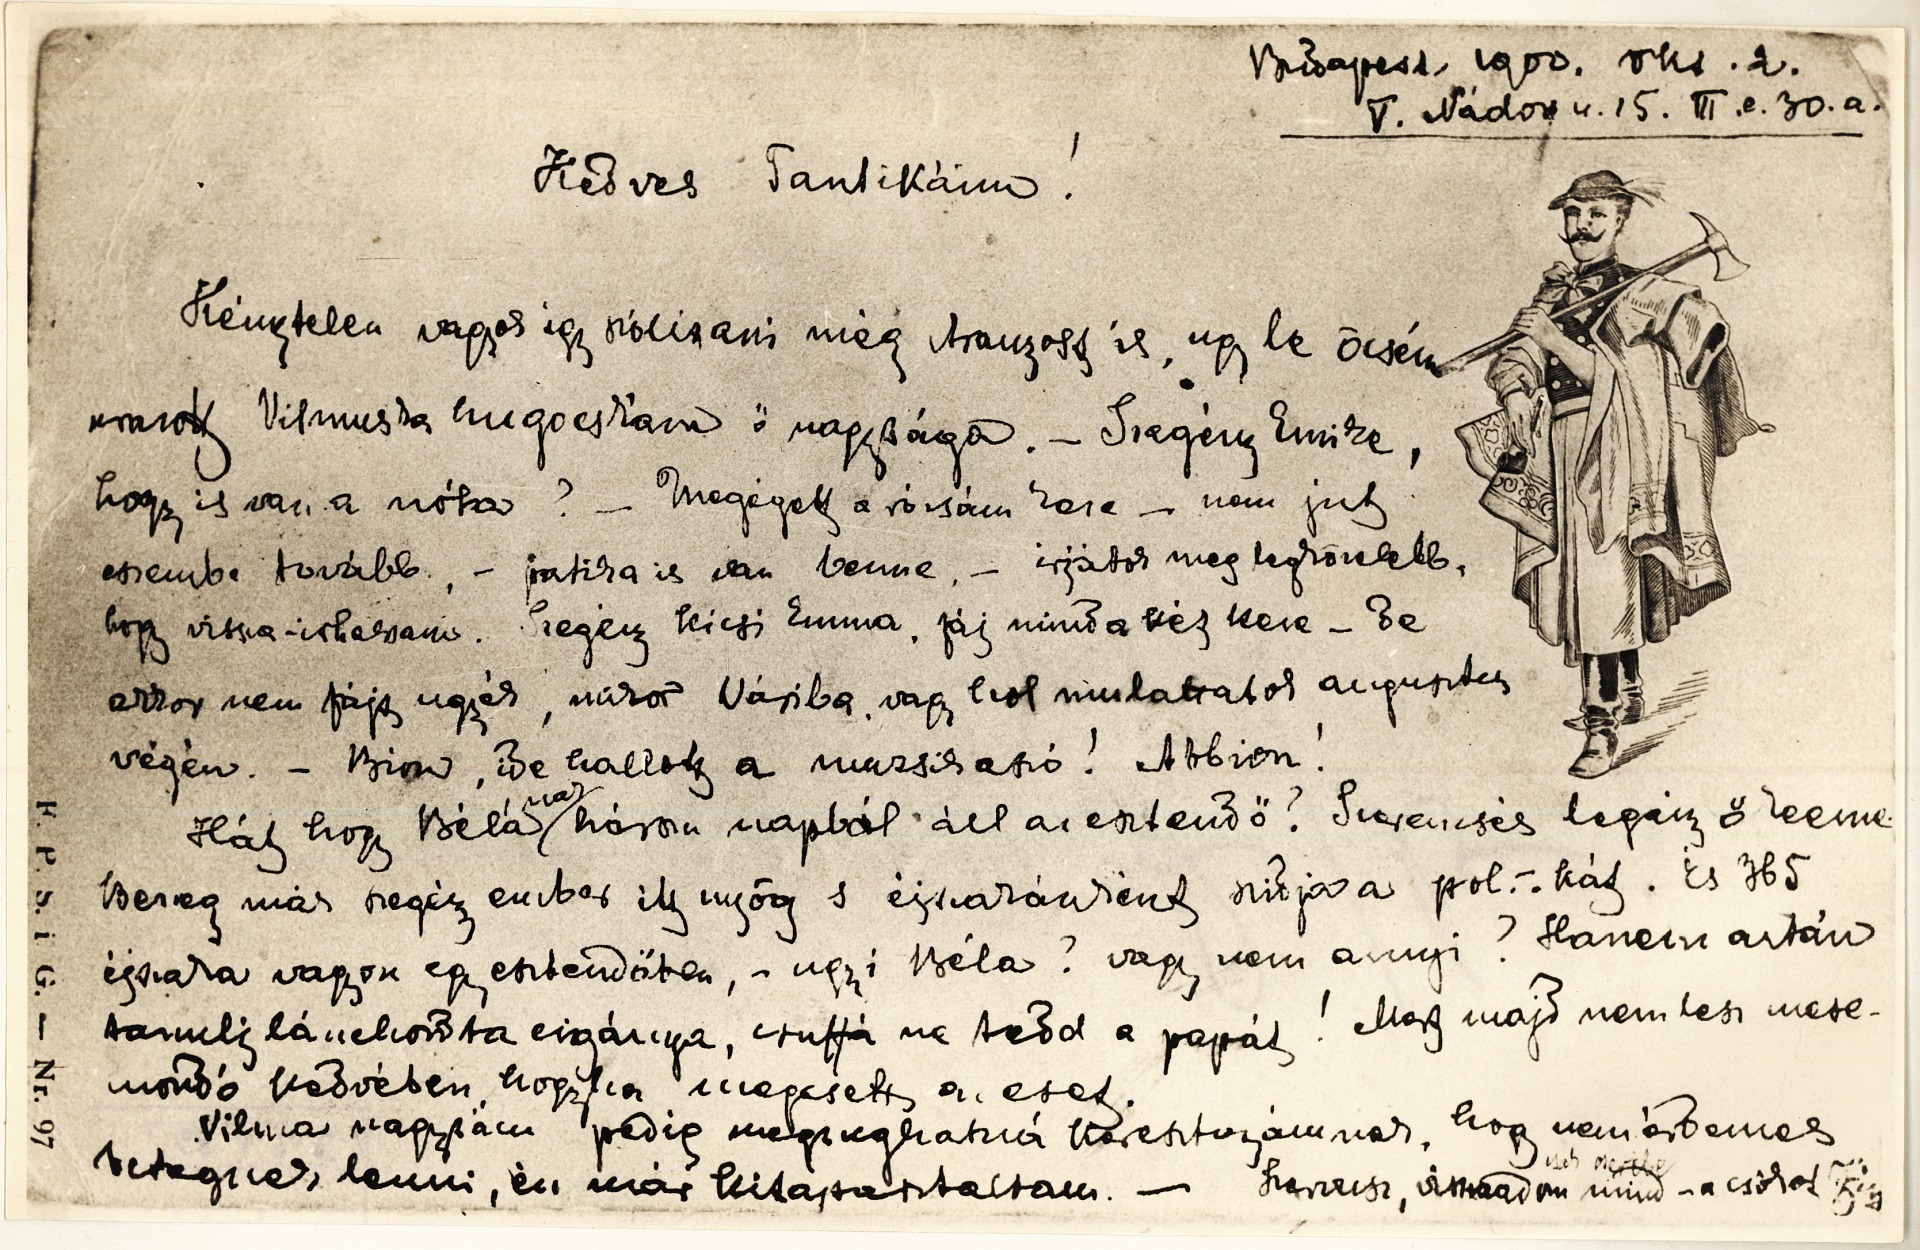 Budapest, 1900. okt. 2.
V. Nádor u. 15. III. e. 30. a.
Kedves Tantikám!
Kénytelen vagyok igy szólitani még Aranyost is, ugy le öcsém
uramat, Vilmuska hugocskám ő nagysága. – Szegény Emike,
hogy is van a nóta? – Megégett a rózsám keze – nem jut
eszembe tovább, – patika is van benne, – irjátok meg legközelebb,
hogy vissza-irhassam. Szegény kicsi Emma, fáj mind a két keze – de
akkor nem fájt ugyé, mikor Vásiba, vagy hol mulattatok augusztus
végén. – Bion, ide hallott a muzsikaszó! Abbion!
Hát hogy Béla, három napból áll az esztendő? Szerencsés legény ő keeme
Bereg már szegény ember itt nyög s éjszakánként szidja a pol.-.kát. És 365
éjszaka vagyon egy esztendőben, – ugy-i Béla? vagy nem annyi? Hanem aztán
tanulj lánchordta cigánya, csuffá ne tedd a papát! Mert majd nem lesz mese-
mondó kedvében, hogyha megesett az eset.
Vilma nagyzám pedig megsughatná Keresztanyámnak, hogy nem érdemes
betegnek lenni, én már kitapasztaltam. — Szervusz, visszaadom mind – a csókot
K. P. S. i G. — Nr. 97